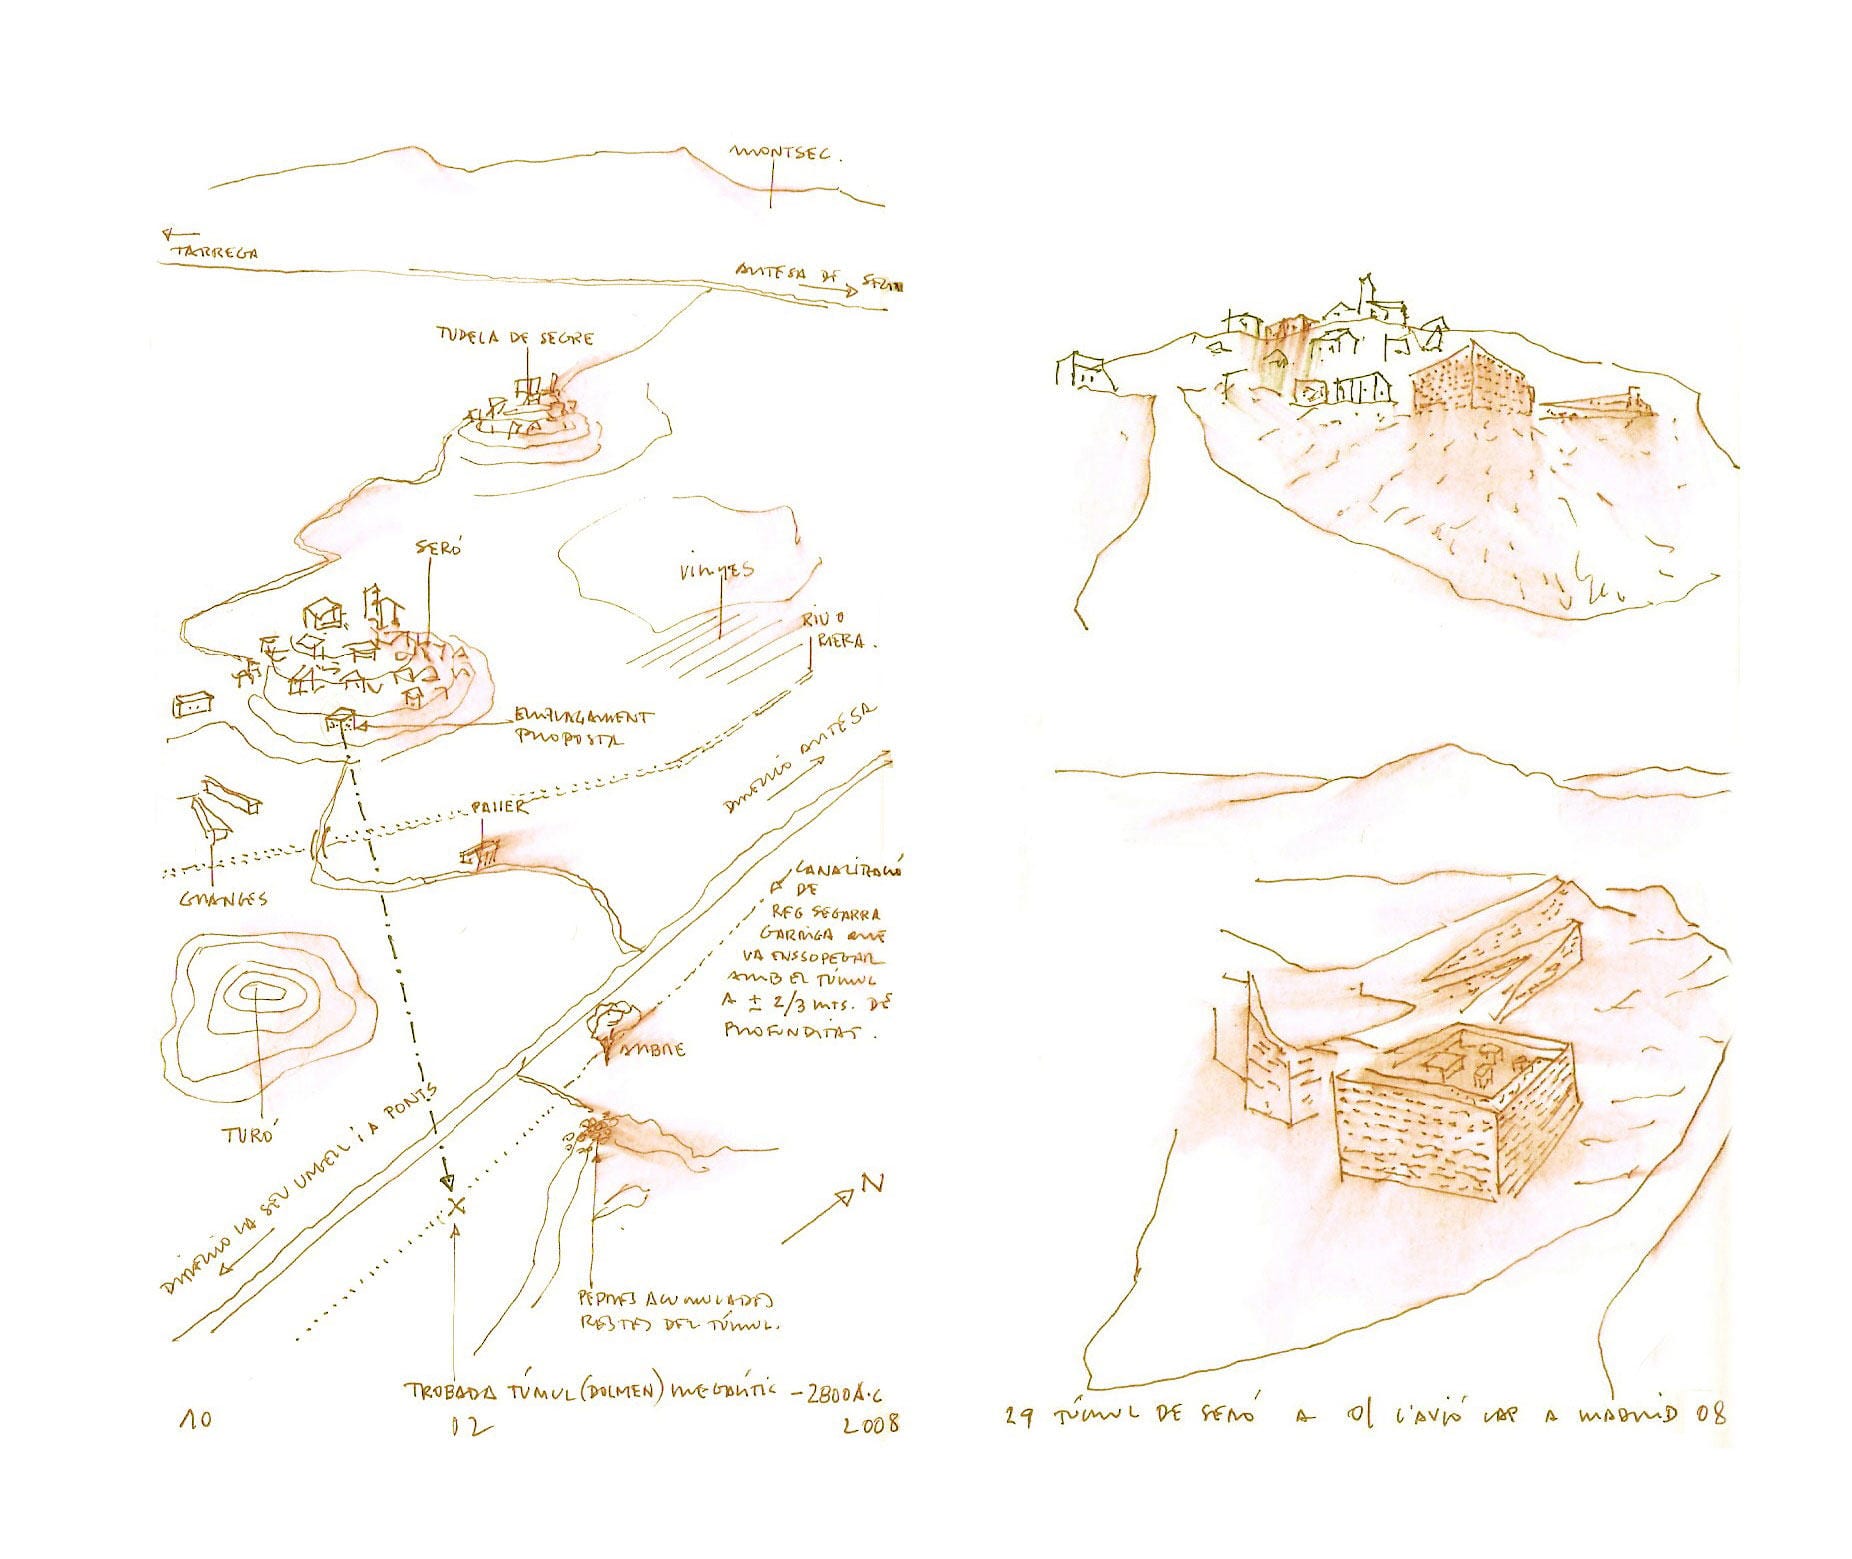 MONTSEC.
TARREGA
ARTESA DE
TUDELA DE SEGRE
SERÓ
VINYES
RIU O
RIERA.
EMPLAÇAMENT
PROPOSTA
DIRECCIÓ ARTESA
PALLER
GRANGES
CANALITZACIÓ
DE
REG SEGARRA
GARRIGA QUE
VA ENSSOPEGAR
AMB EL TÚMUL
A ± 2/3 MTS. DE
PROFUNDITAT.
ARBRE
TURÓ
DIRECCIÓ LA SEU URGELL I A PONTS
N
PEDRES ACUMULADES
RESTES DEL TÚMUL.
TROBADA TÚMUL (DOLMEN) MEGALÍTIC - 2800 A.C
10 12 2008
29 TÚMUL DE SERÓ A 01 L'AVIÓ CAP A MADRID 08